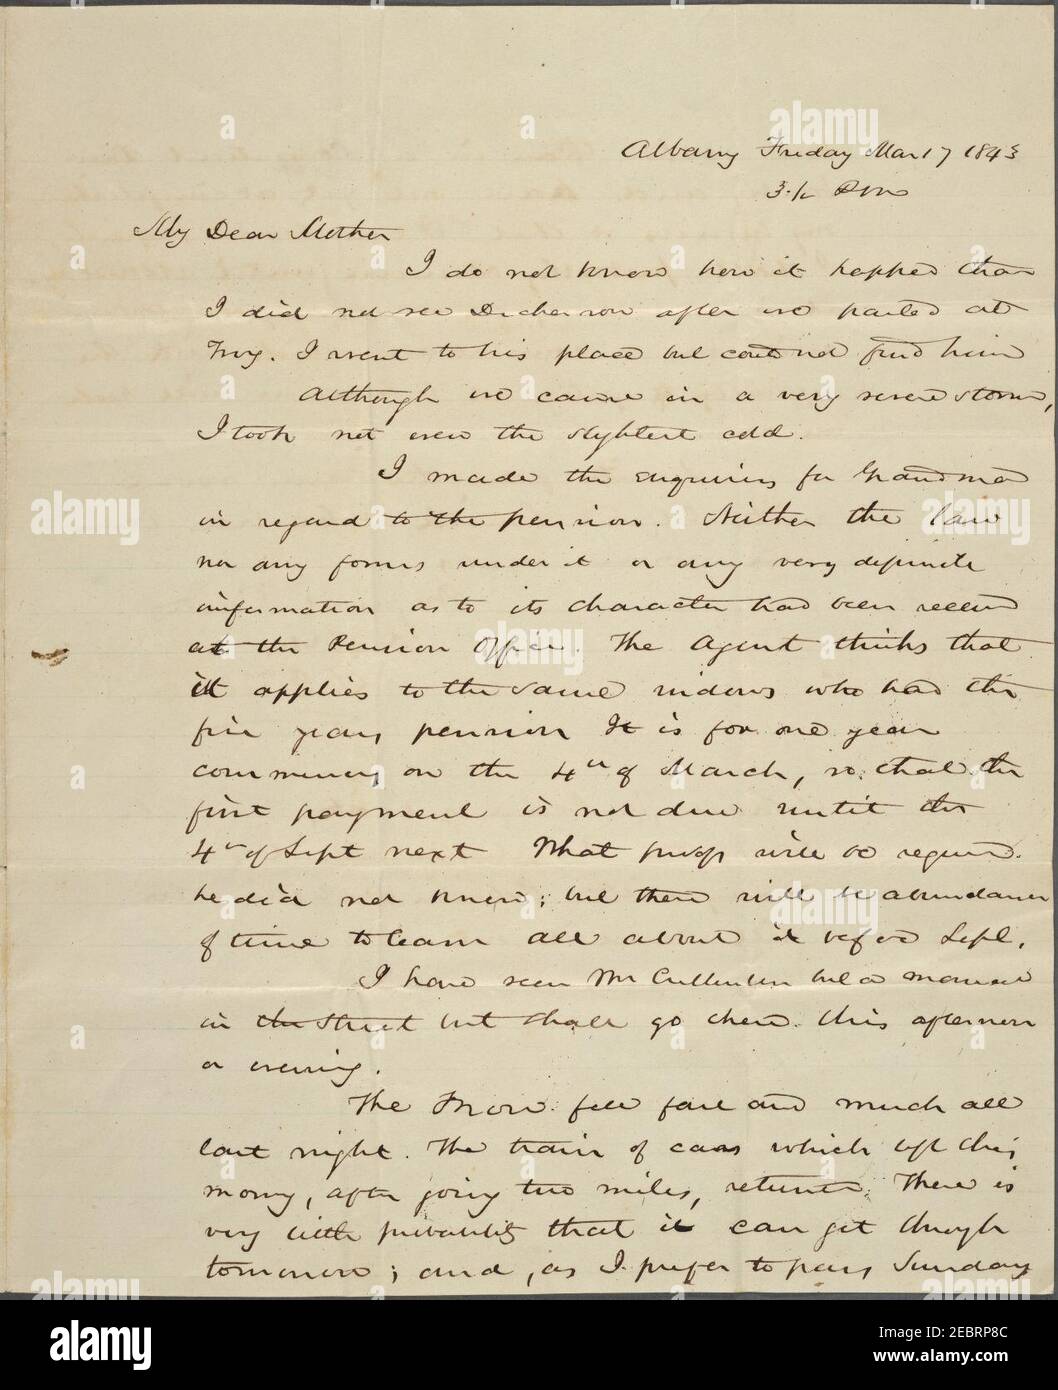 Albany Friday Mar 17 1843
3 ½ P M
My Dear Mother
I do not know how it happed that
I did not see Dickenson after we parted at
Troy. I went to his place but could not find him
Although we came in a very severe storm,
I took not even the slightest cold.
I made the enquiries for Grandma
in regard to the pension. Neither the law
nor any forms under it or any very definite
information as to its character had been received
at the Pension Office. The Agent thinks that
it applies to the same widows who had the
five years pension It is for one year
commencing on the 4th of March, so that the
first payment is not due until the
4th of Sept next What proofs will be required
he did not know; but there will be abundance
of time to learn all about it before Sept.
I have seen Mr but a moment
in the street but shall go there this afternoon
or evening.
The Snow fell fast and much all
last night. The train of cars which left this
morng, after going two miles, returned. There is
very little probability that it can get through
tomorrow; and, as I prefer to pass Sunday
alamy
alamy
alamy
alamy
alamy
alamy
alamy
alamy
Image ID: 2EBRP8C
www.alamy.com